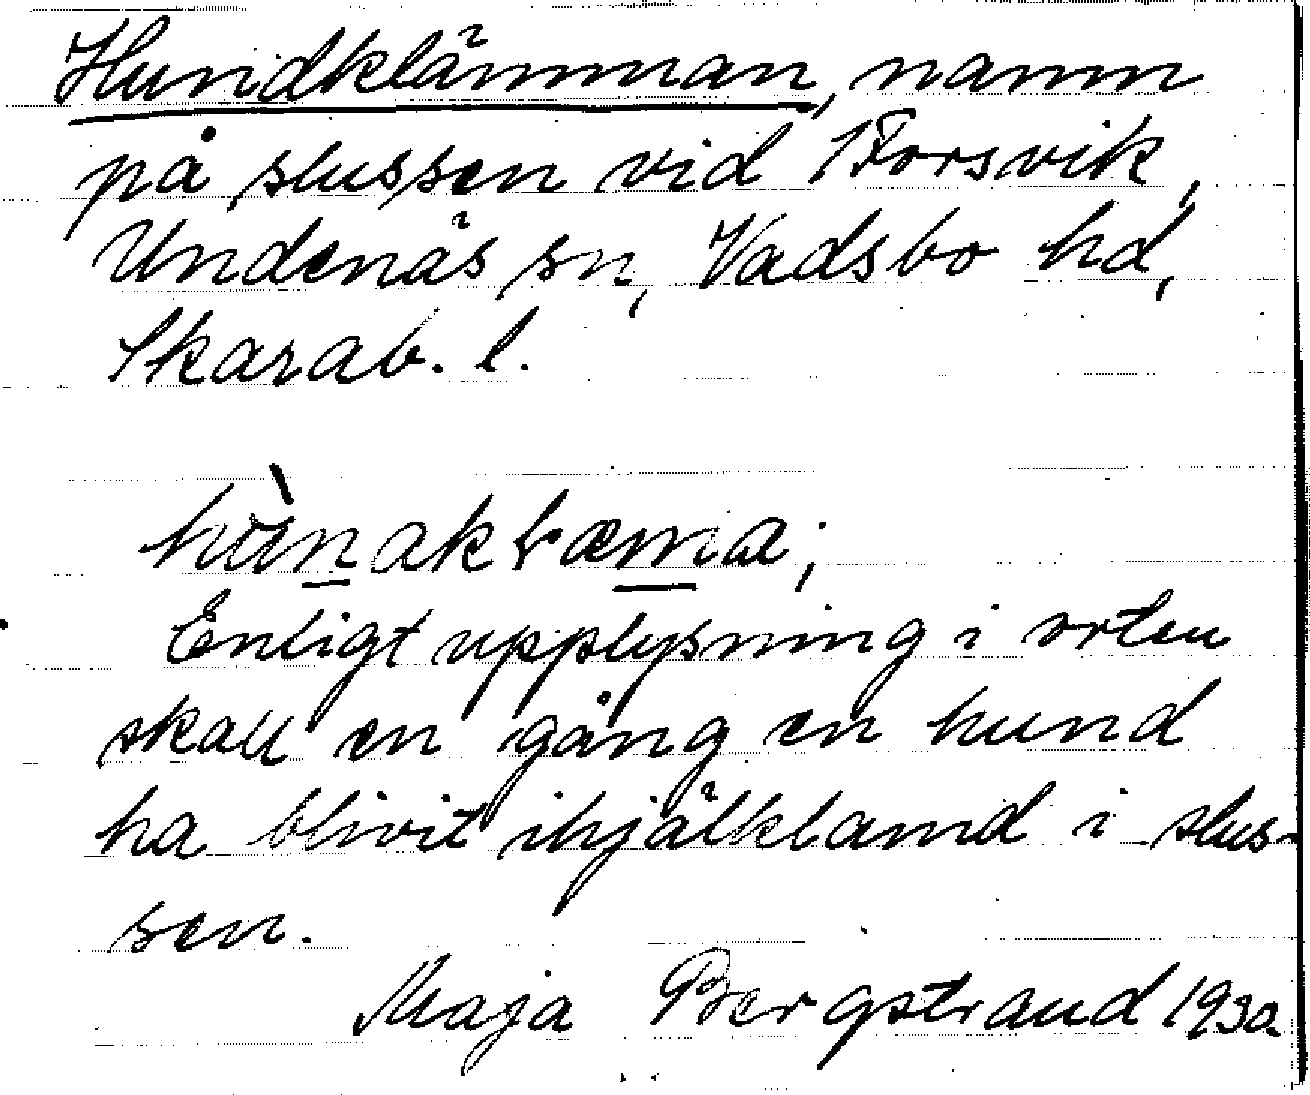 Hundklämman, namn
på slussen vid Forsvik,
Undenäs sn, Vadsbo hd,
Skarab. l.
Enligt upplysning i orten
skall en gång en hund
ha blivit ihjälklämd i slus-
sen.
Maja Bergstrand